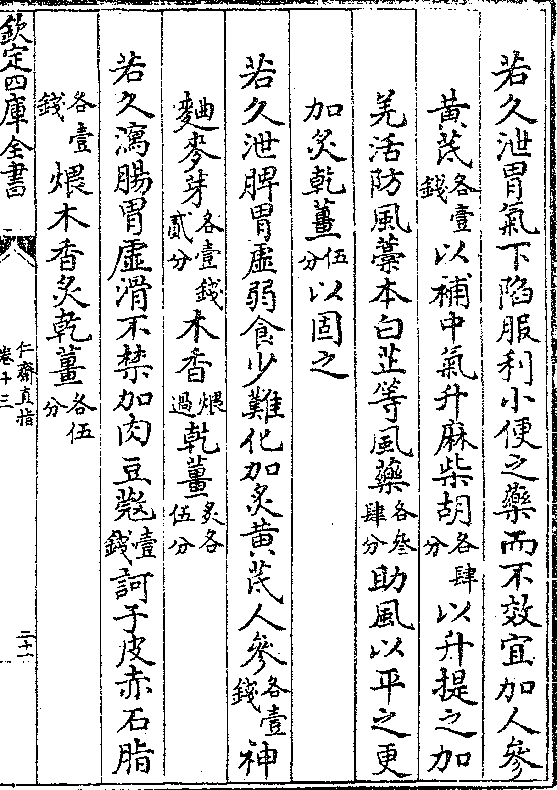 若久泄胃氣下陷服利小便之藥而不效宜加人參
黄芪各壹錢以補中氣升麻柴胡各肆分以升提之加
羌活防風藁本白芷等風藥各叁肆分助風以平之更
加炙乾薑伍分以固之
若久泄脾胃虛弱食少難化加炙黄芪人參各壹錢神
麯麥芽各壹錢貳分木香煨過乾薑炙各伍分
若久瀉腸胃虛滑不禁加肉豆蔻壹錢訶子皮赤石脂
各壹錢煨木香炙乾薑各伍分
欽定四庫全書
仁齋直指
卷十三
二十一